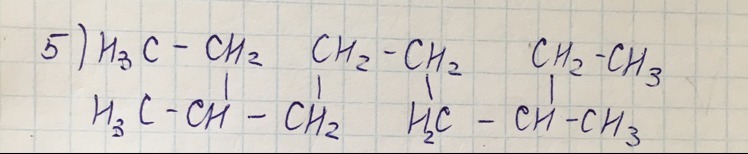 5) H₃C - CH₂ CH₂ - CH₂ CH₂ - CH₃
H₃C - CH - CH₂ H₂C - CH - CH₃